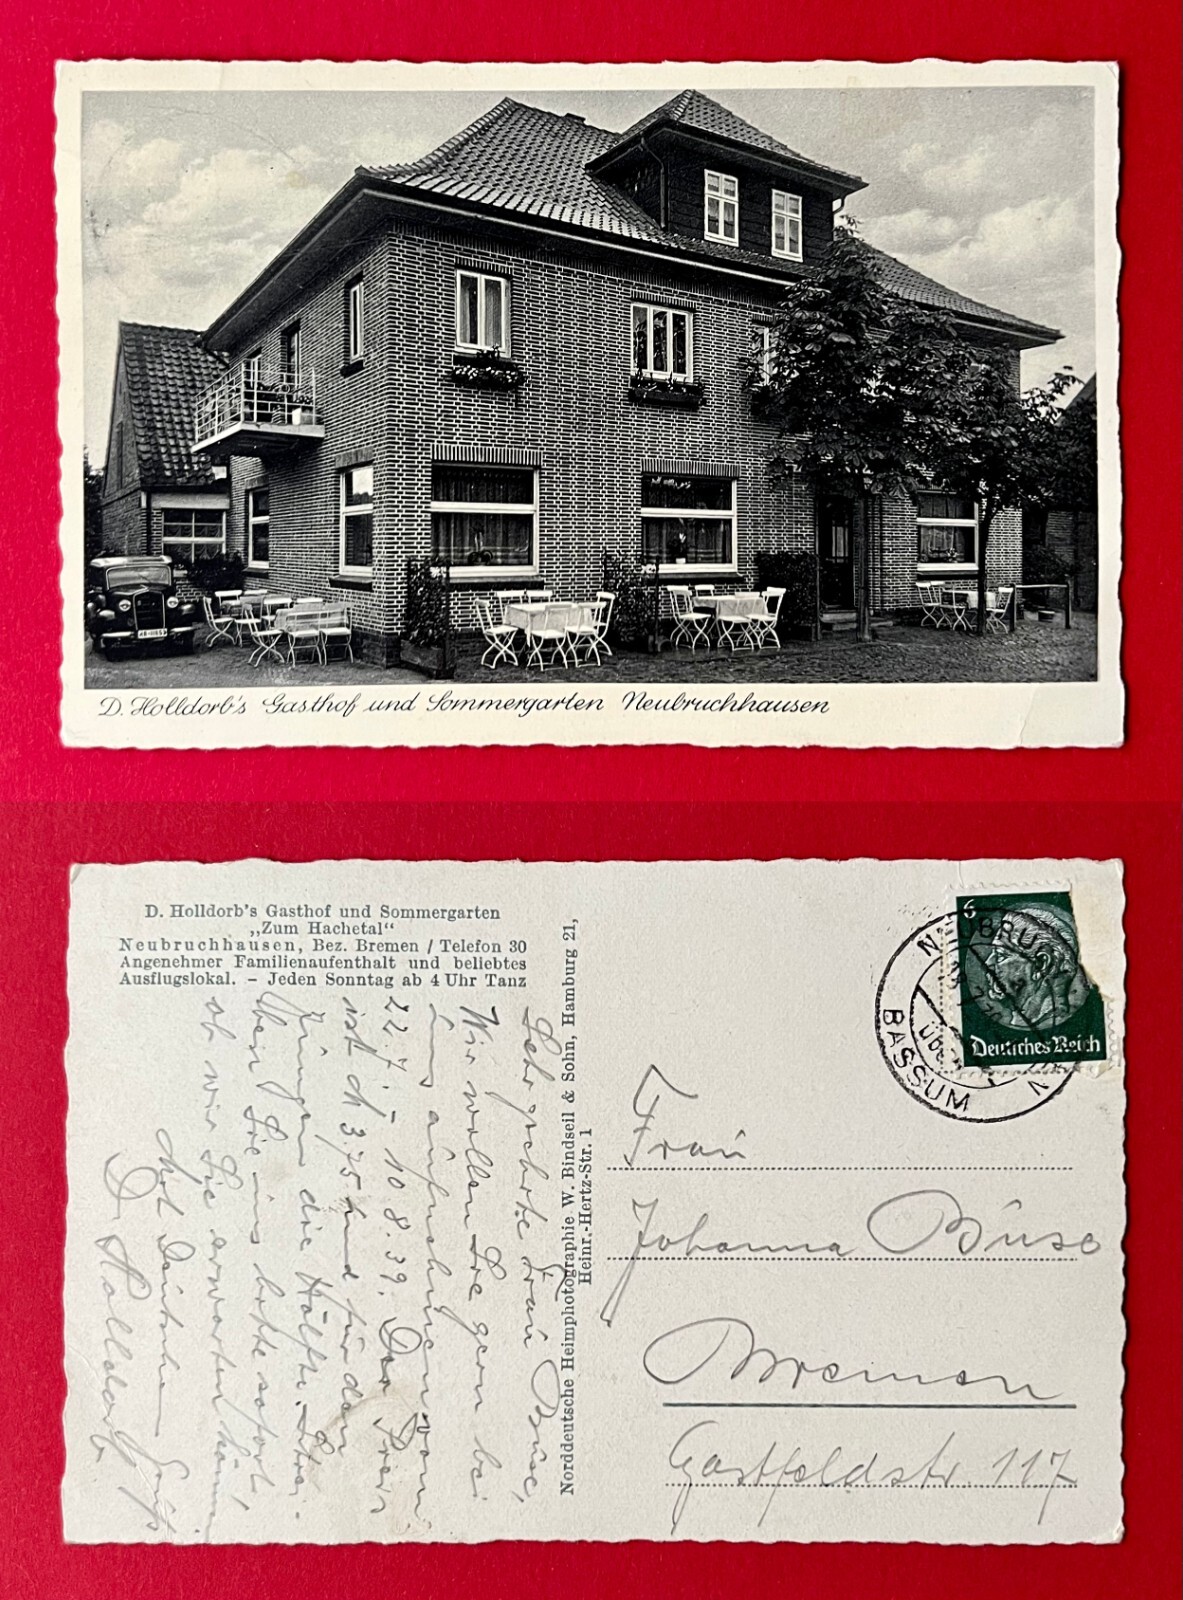 D. Holldorb's Gasthof und Sommergarten Neubruchhausen
D. Holldorb's Gasthof und Sommergarten
„Zum Hachetal“
Neubruchhausen, Bez. Bremen / Telefon 30
Angenehmer Familienaufenthalt und beliebtes
Ausflugslokal. – Jeden Sonntag ab 4 Uhr Tanz
Sehr geehrte Frau Büse,
Wir wollen Sie gern bei
uns aufnehmen vom
22.7. – 10.8.39. Der Preis
ist 3.75 und für den
Jungen die Hälfte.
Sie uns bitte sofort
ob wir Sie erwarten können
Mit Deutschem Gruß
D. Holldorb
Norddeutsche Heimphotographie W. Bindseil & Sohn, Hamburg 21,
Heinr.-Hertz-Str. 1
6
Deutsches Reich
BASSUM
über
Frau
Johanna Büse
Bremen
Gastfeldstr. 117